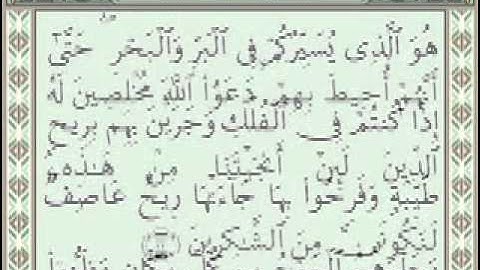 هُوَ ٱلَّذِى يُسَيِّرُكُمْ فِى ٱلْبَرِّ وَٱلْبَحْرِ ۖ حَتَّىٰٓ
أَنَّهُمْ أُحِيطَ بِهِمْ دَعَوُا۟ ٱللَّهَ مُخْلِصِينَ لَهُ
إِذَا كُنتُمْ فِى ٱلْفُلْكِ وَجَرَيْنَ بِهِم بِرِيحٍ
ٱلدِّينَ لَئِنْ أَنجَيْتَنَا مِنْ هَٰذِهِۦ
طَيِّبَةٍ وَفَرِحُوا۟ بِهَا جَآءَتْهَا رِيحٌ عَاصِفٌ
لَنَكُونَنَّ مِنَ ٱلشَّٰكِرِينَ